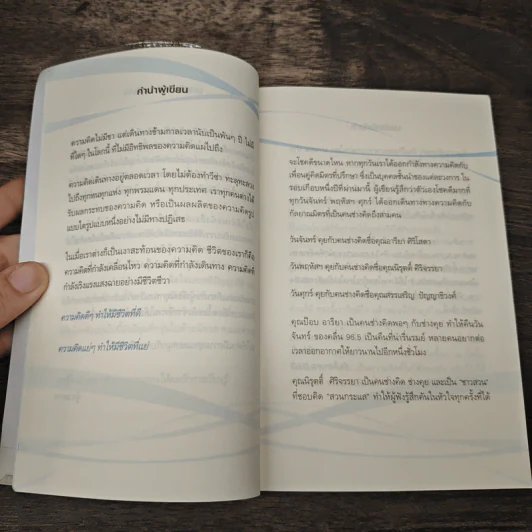 คำนำผู้เขียน
ความคิดไม่มีขา แต่เดินทางข้ามกาลเวลานับเป็นพันๆ ปี ไม่มี
ที่ใดๆ ในโลกนี้ ที่ไม่มีอิทธิพลของความคิดแผ่ไปถึง
ความคิดเดินทางอยู่ตลอดเวลา โดยไม่ต้องทำวีซ่า ทะลุทะลวง
ไปถึงทุกหนทุกแห่ง ทุกพรมแดน ทุกประเทศ เราทุกคนต่างได้
รับผลกระทบของความคิด หรือเป็นผลผลิตของความคิดรูป
แบบใดรูปแบบหนึ่งอย่างไม่มีทางปฏิเสธ
ในเมื่อเราต่างก็เป็นเงาสะท้อนของความคิด ชีวิตของเราก็คือ
ความคิดที่กำลังเคลื่อนไหว ความคิดที่กำลังเดินทาง ความคิดที่
กำลังเริงแรงแสงฉายอย่างมีชีวิตชีวา
ความคิดดีๆ ทำให้มีชีวิตที่ดี
ความคิดแย่ๆ ทำให้มีชีวิตที่แย่
จะโชคดีขนาดไหน หากทุกวันเราได้ออกกำลังทางความคิดกับ
เพื่อนคู่คิดมิตรที่ปรึกษา ซึ่งเป็นบุคคลชั้นนำของแต่ละวงการ ใน
รอบเกือบหนึ่งปีที่ผ่านมานี้ ผู้เขียนรู้สึกว่าตัวเองโชคดีมากที่
ทุกวันจันทร์ พฤหัสฯ ศุกร์ ได้ออกเดินทางทางความคิดกับ
กัลยาณมิตรที่เป็นคนช่างคิดถึงสามคน
วันจันทร์ คุยกับคนช่างคิดชื่อคุณอาริยา ศิริโสดา
วันพฤหัสฯ คุยกับคนช่างคิดชื่อคุณนิรุตติ์ ศิริจรรยา
วันศุกร์ คุยกับคนช่างคิดชื่อคุณสรรเสริญ ปัญญาธิวงศ์
คุณป๊อบ อาริยา เป็นคนช่างคิดพอๆ กับช่างคุย ทำให้คืนวัน
จันทร์ ของคลื่น 96.5 เป็นคืนที่น่ารื่นรมย์ หลายคนอยากต่อ
เวลาออกอากาศให้ยาวนานไปอีกหนึ่งชั่วโมง
คุณนิรุตติ์ ศิริจรรยา เป็นคนช่างคิด ช่างคุย และเป็น "ชาวสวน"
ที่ชอบคิด "สวนกระแส" ทำให้ผู้ฟังรู้สึกคันในหัวใจทุกครั้งที่ได้